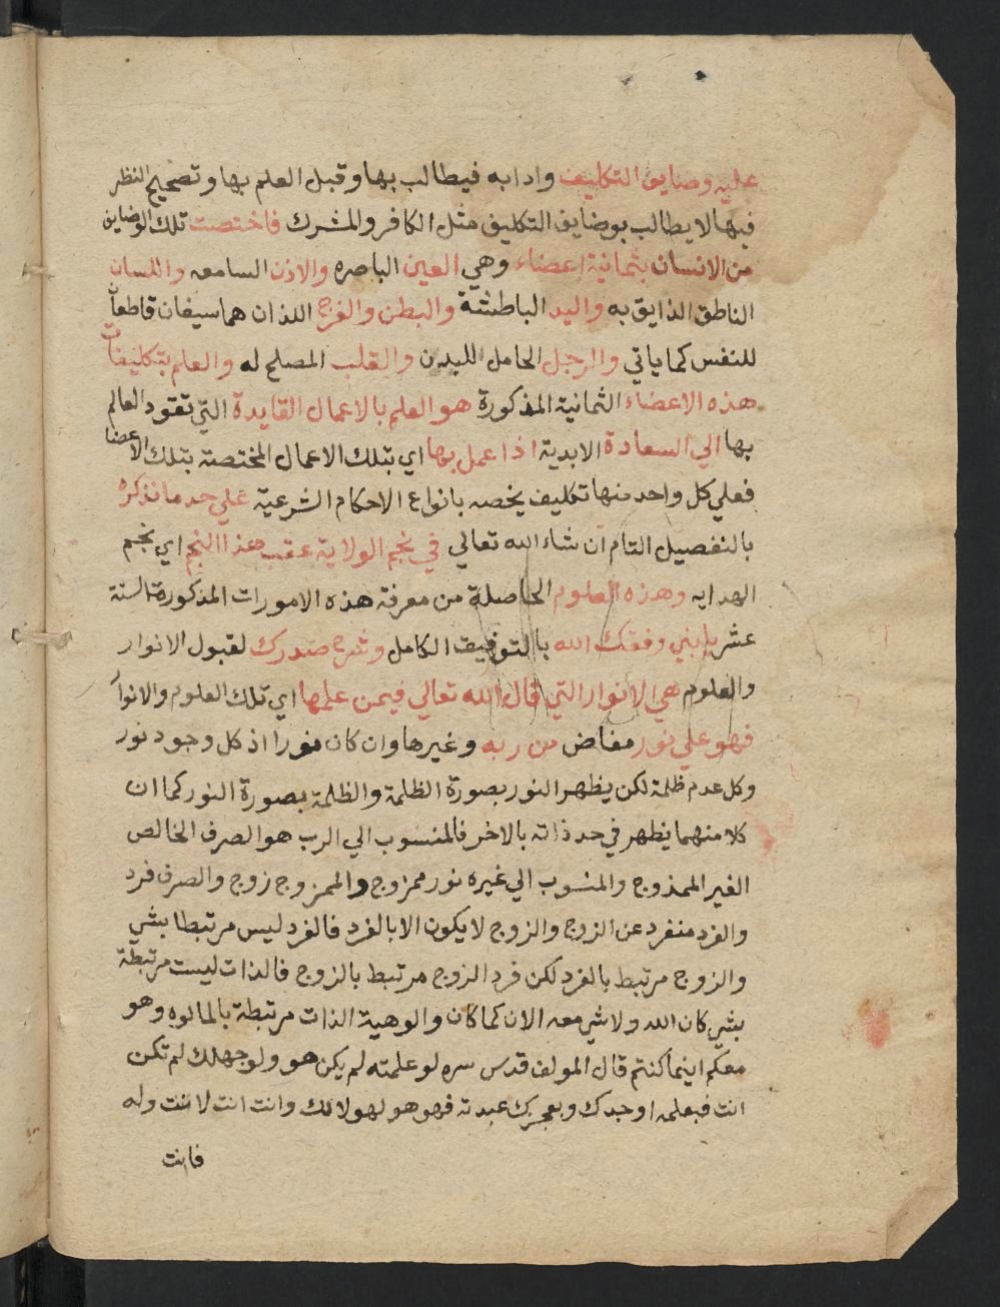 عليه وضايف التكليف وادابه فيطالب بها وقبل العلم بها وتصحيح النظر
فيها لا يطالب بوضايف التكليف مثل الكافر والمشرك فاختصت تلك الوضايف
من الانسان بثمانية اعضاء وهي العين الباصره والاذن السامعه واللسان
الناطق الذايق به واليد الباطشة والبطن والفرج اللذان هما سيفان قاطعان
للنفس كما ياتي والرجل الحامل للبدن والقلب المصلح له والعلم بتكليفات
هذه الاعضاء الثمانية المذكورة هو العلم بالاعمال القايدة التي تقود العالم
بها الي السعادة الابدية اذا عمل بها اي بتلك الاعمال المختصة بتلك الاعضا
فعلي كل واحد منها تكليف يخصه بانواع الاحكام الشرعية علي حد ما نذكره
بالتفصيل التام ان شاء الله تعالي في نجم الولاية عقب هذا النجم اي نجم
الهدايه وهذه العلوم الحاصلة من معرفة هذه الامورات المذكورة الستة
عشر يا بني وفقك الله بالتوفيق الكامل وشرح صدرك لقبول الانوار
والعلوم هي الانوار التي قال الله تعالي فيمن علمها اي تلك العلوم والانوار
فهو علي نور مفاض من ربه وغيرها وان كان نورا اذ كل وجود نور
وكل عدم ظلمة لكن يظهر النور بصورة الظلمة والظلمة بصورة النور كما ان
كلا منهما يظهر في حد ذاته بالاخر فالمنسوب الي الرب هو الصرف الخالص
الغير الممذوج والمنسوب الي غيره نور ممزوج والممزوج زوج والصرف فرد
والفرد منفرد عن الزوج والزوج لا يكون الا بالفرد فالفرد ليس مرتبطا بشي
والزوج مرتبط بالفرد لكن فرد الزوج مرتبط بالزوج فالذات ليست مرتبطة
بشي كان الله ولا شي معه الان كما كان والوهية الذات مرتبطة بالمالوه وهو
معكم اينما كنتم قال المولف قدس سره لو علمته لم يكن هو ولو جهلك لم تكن
انت فبعلمه اوجدك وبعجزك عبدته فهو هو لهو لا لك وانت انت لانت وله
فانت